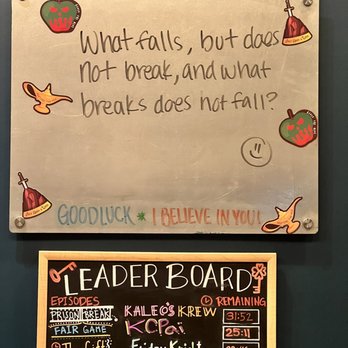 What falls, but does
not break, and what
breaks does not fall?
GOODLUCK * I BELIEVE IN YOU!
LEADER BOARD
EPISODES REMAINING
PRISON BREAK KALEO'S KREW 31:52
FAIR GAME KCPai 25:11
The Gift Friday Knight